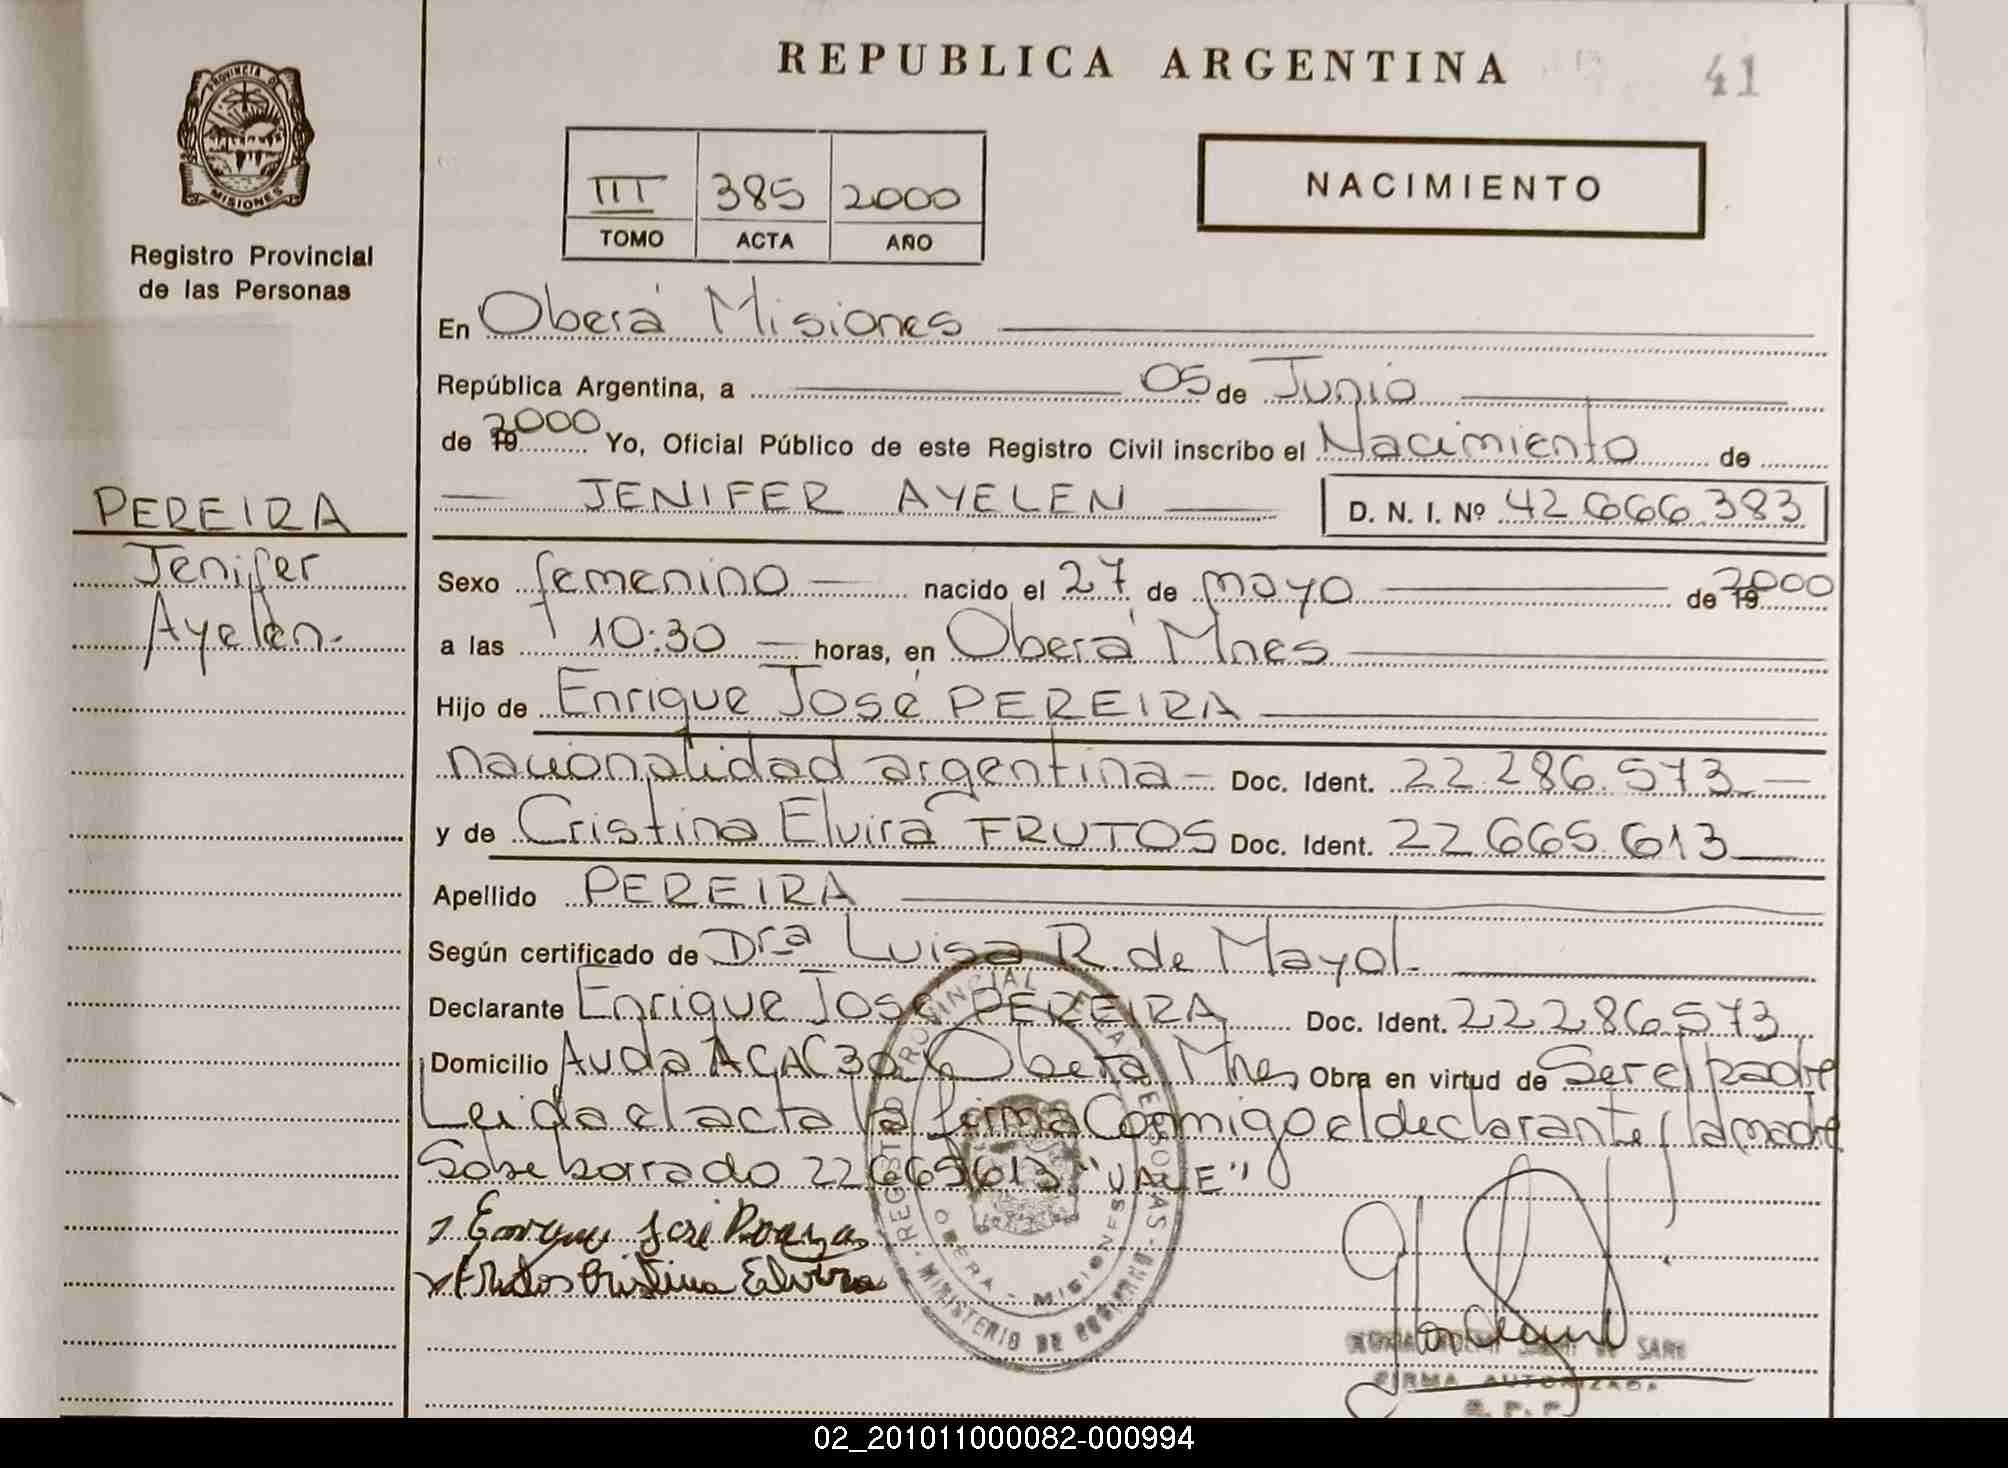 REPUBLICA ARGENTINA
41
PROVINCIA DE
MISIONES
Registro Provincial
de las Personas
III 385 2000
TOMO ACTA AÑO
NACIMIENTO
En Oberá Misiones
República Argentina, a 05 de Junio
de 19 2000 Yo, Oficial Público de este Registro Civil inscribo el Nacimiento de
JENIFER AYELEN D. N. I. Nº 42.666.383
PEREIRA
Jenifer
Ayelen.-
Sexo femenino nacido el 27 de mayo de 19 2000
a las 10:30 horas, en Oberá Mnes
Hijo de Enrique José PEREIRA
nacionalidad argentina - Doc. Ident. 22.286.573
y de Cristina Elvira FRUTOS Doc. Ident. 22.665.613
Apellido PEREIRA
Según certificado de Dra Luisa R. de Mayol.
Declarante Enrique José PEREIRA Doc. Ident. 22.286.573
Domicilio Avda ACAC Oberá Mnes Obra en virtud de Ser el padre
Leida el acta la firma Conmigo el declarante y la madre
Sobre borrado 22665613 "VALE"
Frutos Cristina Elvira
REGISTRO PROVINCIAL DE LAS PERSONAS
OBERA - MISIONES
MINISTERIO DE GOBIERNO
FIRMA AUTORIZADA
02_201011000082-000994